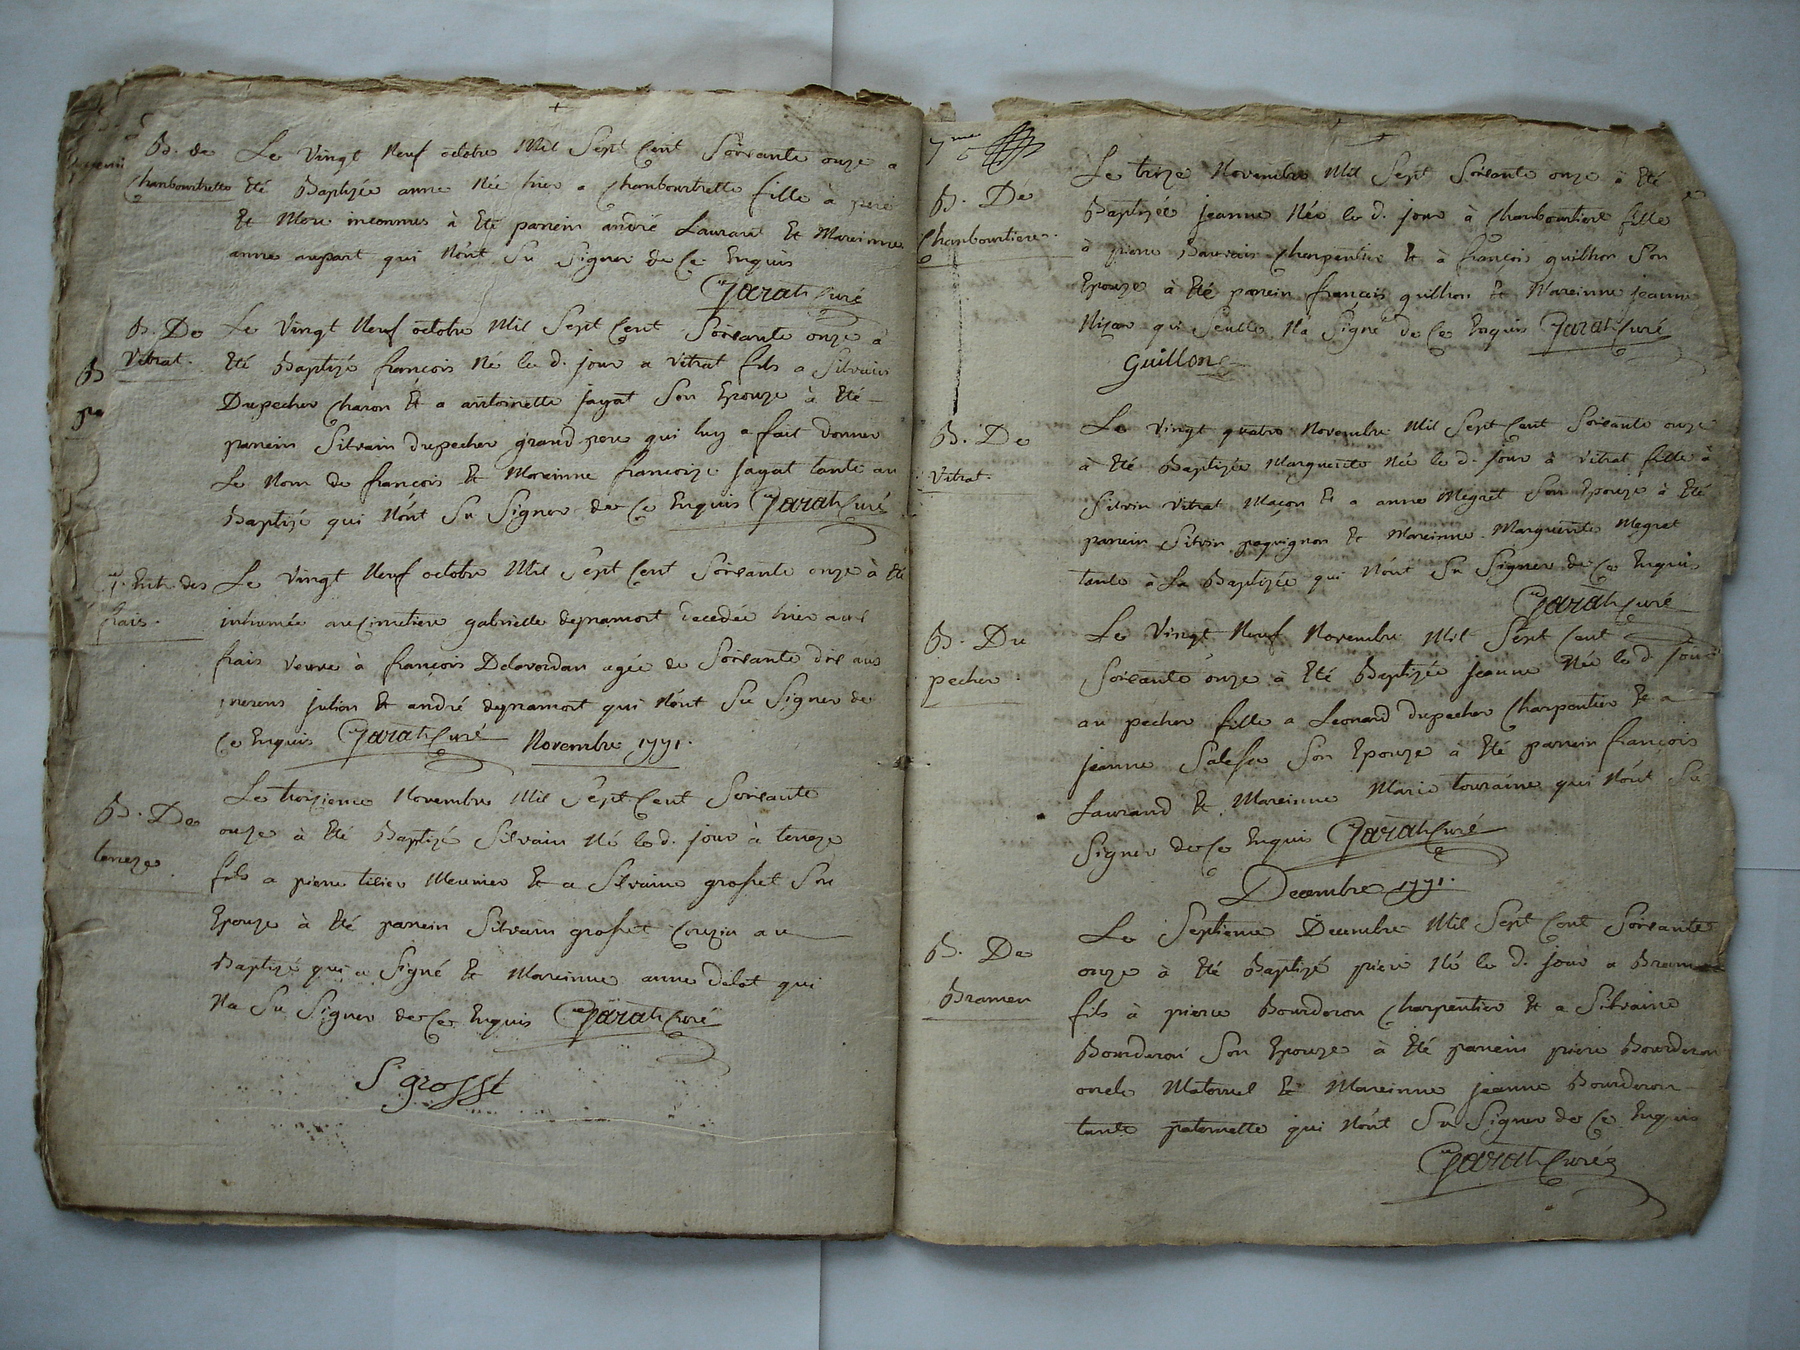 B. de
Chanbourtrette
Le Vingt Neuf octobre Mil Sept Cent Soixante onze a
Eté Baptizée anne Née hier a Chanbourtrette fille à pere
Et Mere inconnus à Eté parein andré Laurand Et Mareinne
anne aupart qui N'ont Su Signer de Ce Enquis
Garat Curé
B. De
Vitrat.
Le Vingt Neuf octobre Mil Sept Cent Soixante onze a
Eté Baptizé françois Né le d. jour a Vitrat fils a Silvain
Dupecher Charon Et a antoinette jayat Son Epouze à Eté
parein Silvain dupecher grand pere qui luy a fait donner
Le Nom de françois Et Mareinne françoize jayat tante au
Baptizé qui N'ont Su Signer de Ce Enquis Garat Curé
Ent. des
frais.
Le Vingt Neuf octobre Mil Sept Cent Soixante onze à Eté
inhumée au Cimetiere gabrielle deynamort decedée hier aux
frais veuve à françois Delavordan agée de Soixante dix ans
presens julien Et andré deynamort qui N'ont Su Signer de
Ce Enquis Garat Curé
Novembre 1771.
B. De
terreze.
Le troizieme Novembre Mil Sept Cent Soixante
onze à Eté Baptizé Silvain Né le d. jour à terreze
fils a pierre tilier Meunier Et a Silvaine grosset Son
Epouze à Eté parein Silvain grosset Couzin au
Baptizé qui a Signé Et Mareinne anne délot qui
Na Su Signer de Ce Enquis Garat Curé
S. grosset
7me
B. De
Chanbourtiere.
Le treize Novembre Mil Sept Soixante onze à Eté
Baptizée jeanne Née le d. jour à Chanbourtiere fille
à pierre Charpentier Et à françois guilhon Son
Epouze à Eté parein françois guilhon Et Mareinne jeanne
qui Seulle Na Signé de Ce Enquis Garat Curé
Guillon
B. De
Vitrat.
Le Vingt quatre Novembre Mil Sept Cent Soixante onze
à Eté Baptizée Marguerite Née le d. jour à Vitrat fille à
Silvin Vitrat Maçon Et a anne Megret Son Epouze à Eté
parein Silvin paquignon Et Mareinne Marguerite Megret
tante à La Baptizée qui N'ont Su Signer de Ce Enquis
Garat Curé
B. Du
pecher.
Le Vingt Neuf Novembre Mil Sept Cent
Soixante onze à Eté Baptizée jeanne Née le d. jour
au pecher fille a Leonard dupecher Charpentier Et a
jeanne Salesse Son Epouze a Eté parein françois
Laurand Et Mareinne Marie touraine qui N'ont Su
Signer de Ce Enquis Garat Curé
Decembre 1771.
B. De
Bramen
Le Septieme Decembre Mil Sept Cent Soixante
onze à Eté Baptizé piere Né le d. jour a Bramen
fils à pierre Bourderon Charpentier Et a Silvaine
Bourderon Son Epouze à Eté parein piere Bourderon
oncle Maternel Et Mareinne jeanne Bourderon
tante paternelle qui N'ont Su Signer de Ce Enquis
Garat Curé